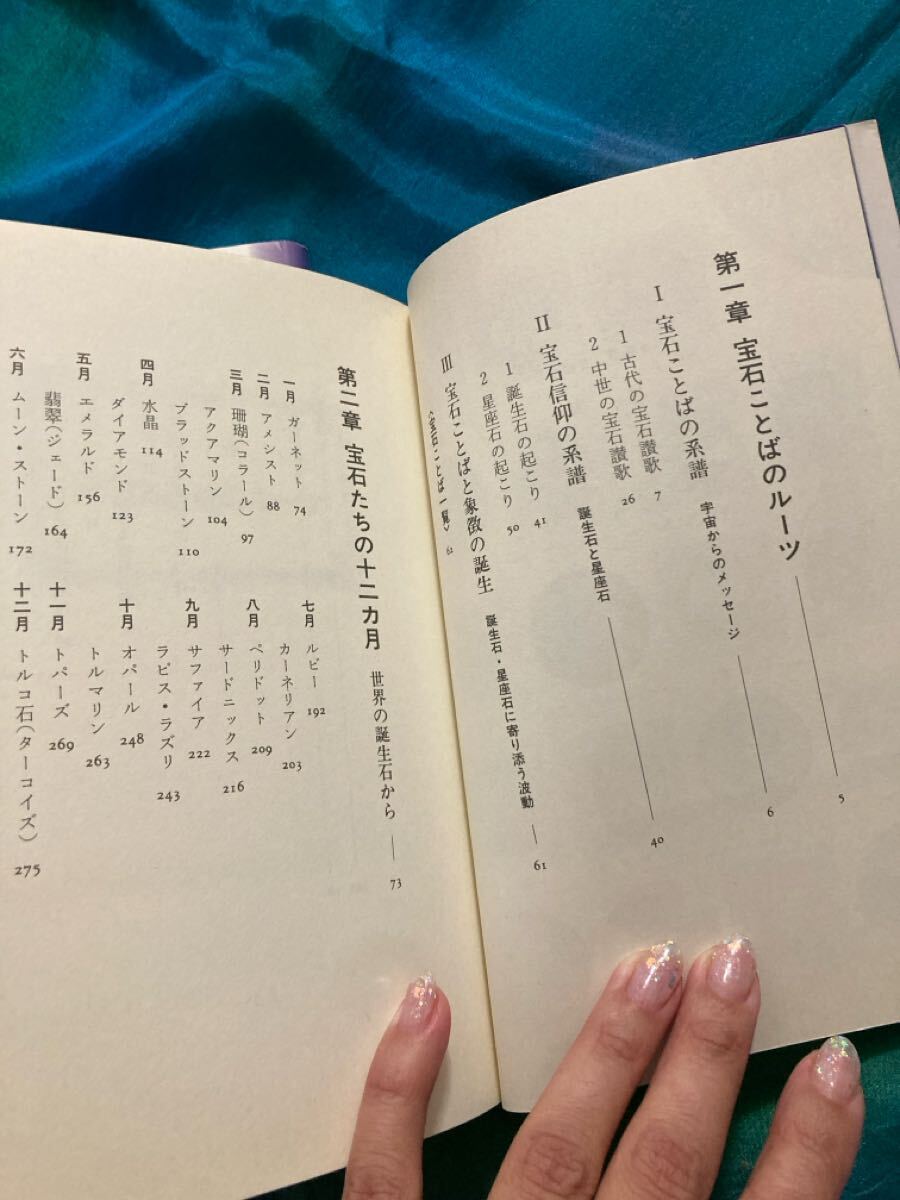 第一章 宝石ことばのルーツ 5
Ⅰ 宝石ことばの系譜 宇宙からのメッセージ 6
1 古代の宝石讃歌 7
2 中世の宝石讃歌 26
Ⅱ 宝石信仰の系譜 誕生石と星座石 40
1 誕生石の起こり 41
2 星座石の起こり 50
Ⅲ 宝石ことばと象徴の誕生 誕生石・星座石に寄り添う波動 61
〈宝石ことば一覧〉 62
第二章 宝石たちの十二カ月 世界の誕生石から 73
一月 ガーネット 74
二月 アメシスト 88
三月 珊瑚(コラール) 97
アクアマリン 104
ブラッドストーン 110
四月 水晶 114
ダイアモンド 123
五月 エメラルド 156
翡翠(ジェード) 164
六月 ムーン・ストーン 172
七月 ルビー 192
カーネリアン 203
八月 ペリドット 209
サードニックス 216
九月 サファイア 222
ラピス・ラズリ 243
十月 オパール 248
トルマリン 263
十一月 トパーズ 269
十二月 トルコ石(ターコイズ) 275